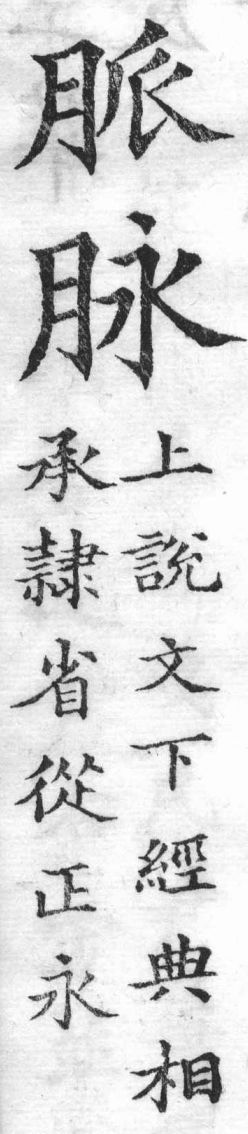 脈脉
上說文下經典相
承隷省從正永